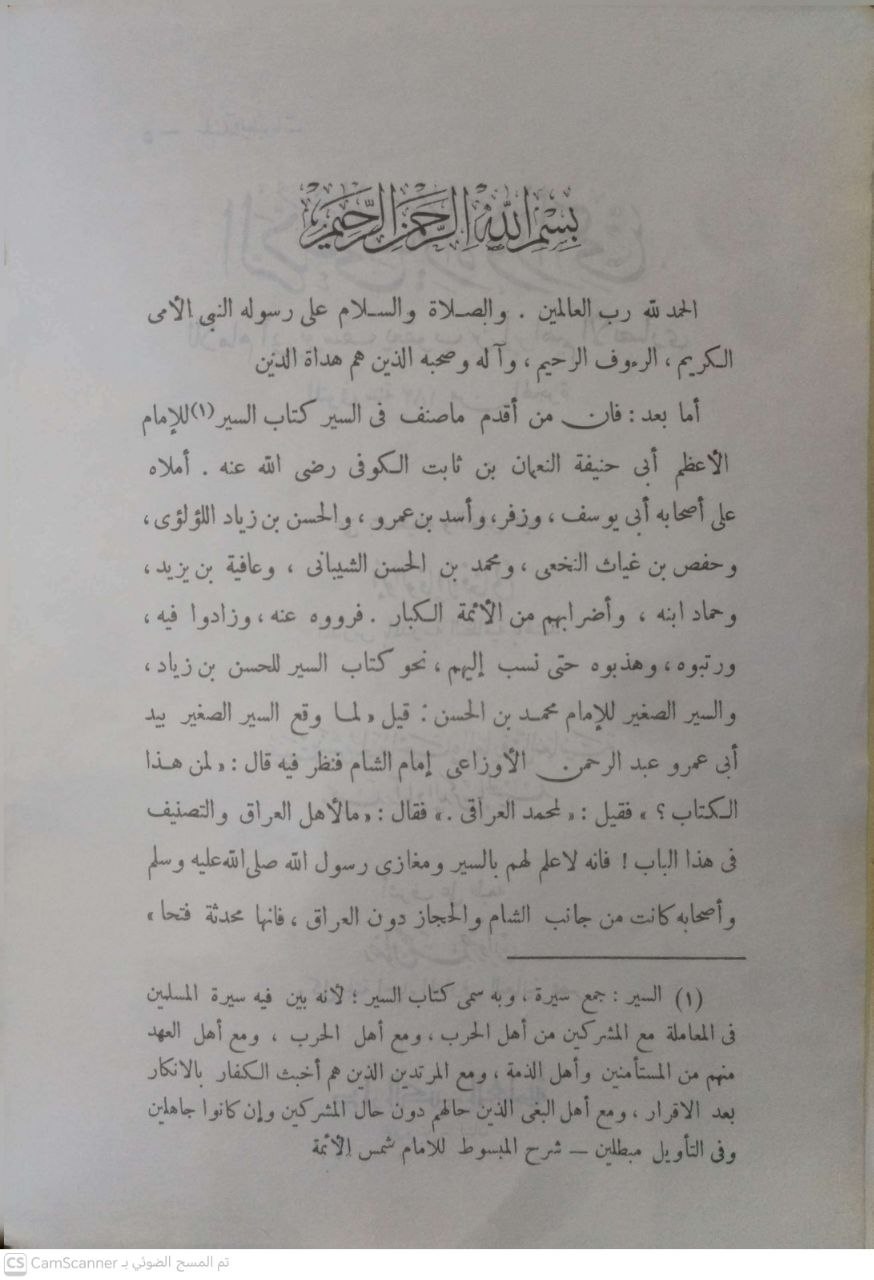 بِسْمِ اللهِ الرَّحْمنِ الرَّحِيمِ
الحمد لله رب العالمين . والصلاة والسلام على رسوله النبى الأمى
الكريم ، الرءوف الرحيم ، وآله وصحبه الذين هم هداة الدين
أما بعد : فان من أقدم ماصنف فى السير كتاب السير (١) للإمام
الأعظم أبى حنيفة النعمان بن ثابت الكوفى رضى الله عنه . أملاه
على أصحابه أبى يوسف ، وزفر، وأسد بن عمرو ، والحسن بن زياد اللؤلؤى ،
وحفص بن غياث النخعى ، ومحمد بن الحسن الشيبانى ، وعافية بن يزيد ،
وحماد ابنه ، وأضرابهم من الأئمة الكبار . فرووه عنه ، وزادوا فيه ،
ورتبوه ، وهذبوه حتى نسب إليهم ، نحو كتاب السير للحسن بن زياد ،
والسير الصغير للإمام محمد بن الحسن : قيل « لما وقع السير الصغير بيد
أبى عمرو عبد الرحمن الأوزاعى إمام الشام فنظر فيه قال : « لمن هذا
الكتاب ؟ » فقيل : « لمحمد العراقى . » فقال : « مالأهل العراق والتصنيف
فى هذا الباب ! فانه لاعلم لهم بالسير ومغازى رسول الله صلى الله عليه وسلم
وأصحابه كانت من جانب الشام والحجاز دون العراق ، فانها محدثة فتحا »
(١) السير : جمع سيرة ، وبه سمى كتاب السير ؛ لأنه بين فيه سيرة المسلمين
فى المعاملة مع المشركين من أهل الحرب ، ومع أهل الحرب ، ومع أهل العهد
منهم من المستأمنين وأهل الذمة ، ومع المرتدين الذين هم أخبث الكفار بالانكار
بعد الاقرار ، ومع أهل البغى الذين حالهم دون حال المشركين وإن كانوا جاهلين
وفى التأويل مبطلين — شرح المبسوط للامام شمس الأئمة
CS CamScanner تم المسح الضوئي بـ